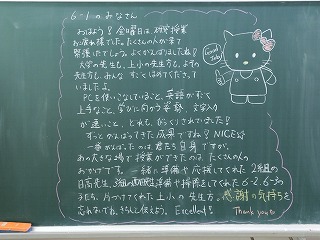 6-1のみなさん
おはよう! 金曜日は、研究授業
お疲れ様でした。たくさんの人が来て
緊張したでしょう。よくがんばりましたね!
大学の先生も、上小の先生方も、よその
先生方も、みんな すごくほめてくださって
いましたよ。
PCを使いこなしていること、英語がすごく
上手なこと、学びに向かう姿勢、文字入力
が速いこと、とても びっくりされていました!
ずっとがんばってきた成果ですね! NICE☆
一番がんばったのは君たち自身ですが、
あの大きな場で授業ができたのは、たくさんの人の
おかげです。一緒に準備や応援してくれた 2組の
日高先生、3組の先生、準備や掃除をしてくれた6-2、6-3の
子たち、片づけてくれた上小の先生方。感謝の気持ちを
忘れないでね。きちんと伝えよう。Excellent!!
Thank you
Good Job!